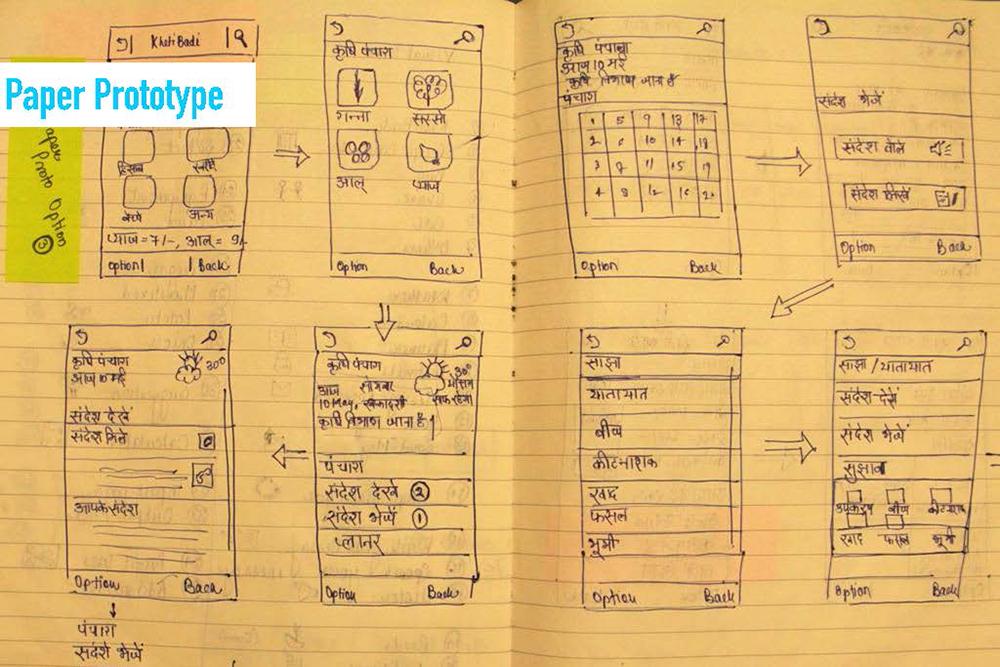 Paper Prototype
Paper
Proto Option
3
KhetiBadi
हिसाब
अन्य
प्याज = 7/-, आलू = 9/-
Option
Back
कृषि पंचाग
गन्ना
सरसो
आलू
प्याज
Option
Back
कृषि पंचाग
आज 10 मई
कृषि विभाग जाना है
पंचाग
1 5 9 13 17
2 6 10 14 18
3 7 11 15 19
4 8 12 16 20
Option
Back
संदेश भेजें
संदेश बोले
संदेश लिखें
Option
Back
कृषि पंचाग
आज 10 मई
30°
संदेश देखें
संदेश मिले
आपके संदेश
Option
Back
पंचाग
संदेश भेजें
कृषि पंचाग
30°
आज सोमवार
मौसम
10 May, एकादशी
साफ रहेगा
कृषि विभाग जाना है
पंचाग
संदेश देखे 2
संदेश भेजें 1
प्लानर
Option
Back
साझा
यातायात
बीज
कीटनाशक
खाद
फसल
भूमी
Option
Back
साझा / यातायात
संदेश देखें
संदेश भेजें
सुझाव
उपकरण बीज कीटनाशक
खाद फसल भूमी
Option
Back